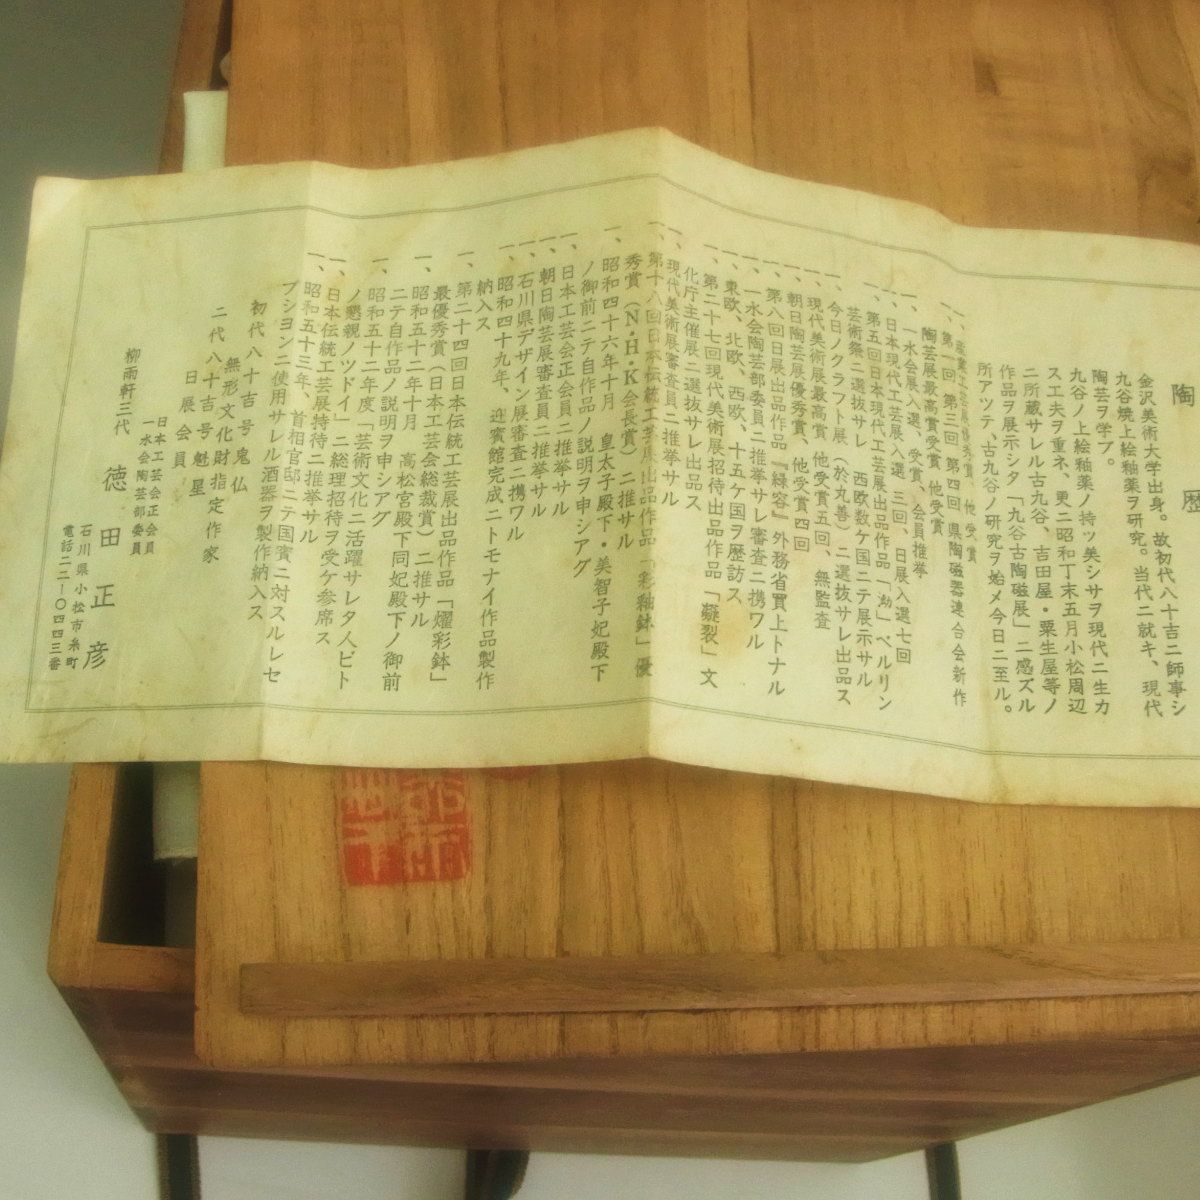 陶歴
金沢美術大学出身。故初代八十吉ニ師事シ
九谷焼上絵釉薬ヲ研究。当代ニ就キ、現代
陶芸ヲ学ブ。
九谷ノ上絵釉薬ノ持ツ美シサヲ現代ニ生カ
ス工夫ヲ重ネ、更ニ昭和丁末五月小松周辺
ニ所蔵サレル古九谷、吉田屋・粟生屋等ノ
作品ヲ展示シタ「九谷古陶磁展」ニ感ズル
所アツテ 古九谷ノ研究ヲ始メ今日ニ至ル。
一、産業工芸展優秀賞、他受賞
一、第一回、第三回、第四回 県陶磁器連合会新作
陶芸展最高賞受賞、他受賞
一、一水会展入選、受賞、会員推挙
一、日本現代工芸展入選 三回、日展入選七回
一、第五回日本現代工芸展出品作品「泑」ベルリン
芸術祭ニ選抜サレ 西欧数ケ国ニテ展示サル
一、今日ノクラフト展(於丸善)ニ選抜サレ出品ス
一、現代美術展最高賞、他受賞五回、無監査
一、朝日陶芸展優秀賞、他受賞四回
一、第八回日展出品作品『緑容』外務省買上トナル
一、一水会陶芸部委員ニ推挙サレ審査ニ携ワル
一、東欧、北欧、西欧、十五ケ国ヲ歴訪ス
一、第二十七回現代美術展招待出品作品「凝裂」文
化庁主催展ニ選抜サレ出品ス
一、現代美術展審査員ニ推挙サル
一、第十八回日本伝統工芸展出品作品「彩釉鉢」優
秀賞(N・H・K会長賞)ニ推サル
一、昭和四十六年十月 皇太子殿下・美智子妃殿下
ノ御前ニテ自作品ノ説明ヲ申シアグ
一、日本工芸会正会員ニ推挙サル
一、朝日陶芸展審査員ニ推挙サル
一、石川県デザイン展審査ニ携ワル
一、昭和四十九年、迎賓館完成ニトモナイ作品製作
納入ス
一、第二十四回日本伝統工芸展出品作品「燿彩鉢」
最優秀賞(日本工芸会総裁賞)ニ推サル
一、昭和五十二年十月 高松宮殿下同妃殿下ノ御前
ニテ自作品ノ説明ヲ申シアグ
一、昭和五十二年度「芸術文化ニ活躍サレタ人ビト
ノ懇親ノツドイ」ニ総理招待ヲ受ケ参席ス
一、日本伝統工芸展特待ニ推挙サル
一、昭和五十三年、首相官邸ニテ国賓ニ対スルレセ
プシヨンニ使用サルル酒器ヲ製作納入ス
初代八十吉 号鬼仏
無形文化財指定作家
二代八十吉 号魁星
日展会員
日本工芸会正会員
一水会陶芸部委員
柳雨軒三代 徳田正彦
石川県小松市糸町
電話二二-〇四四三番